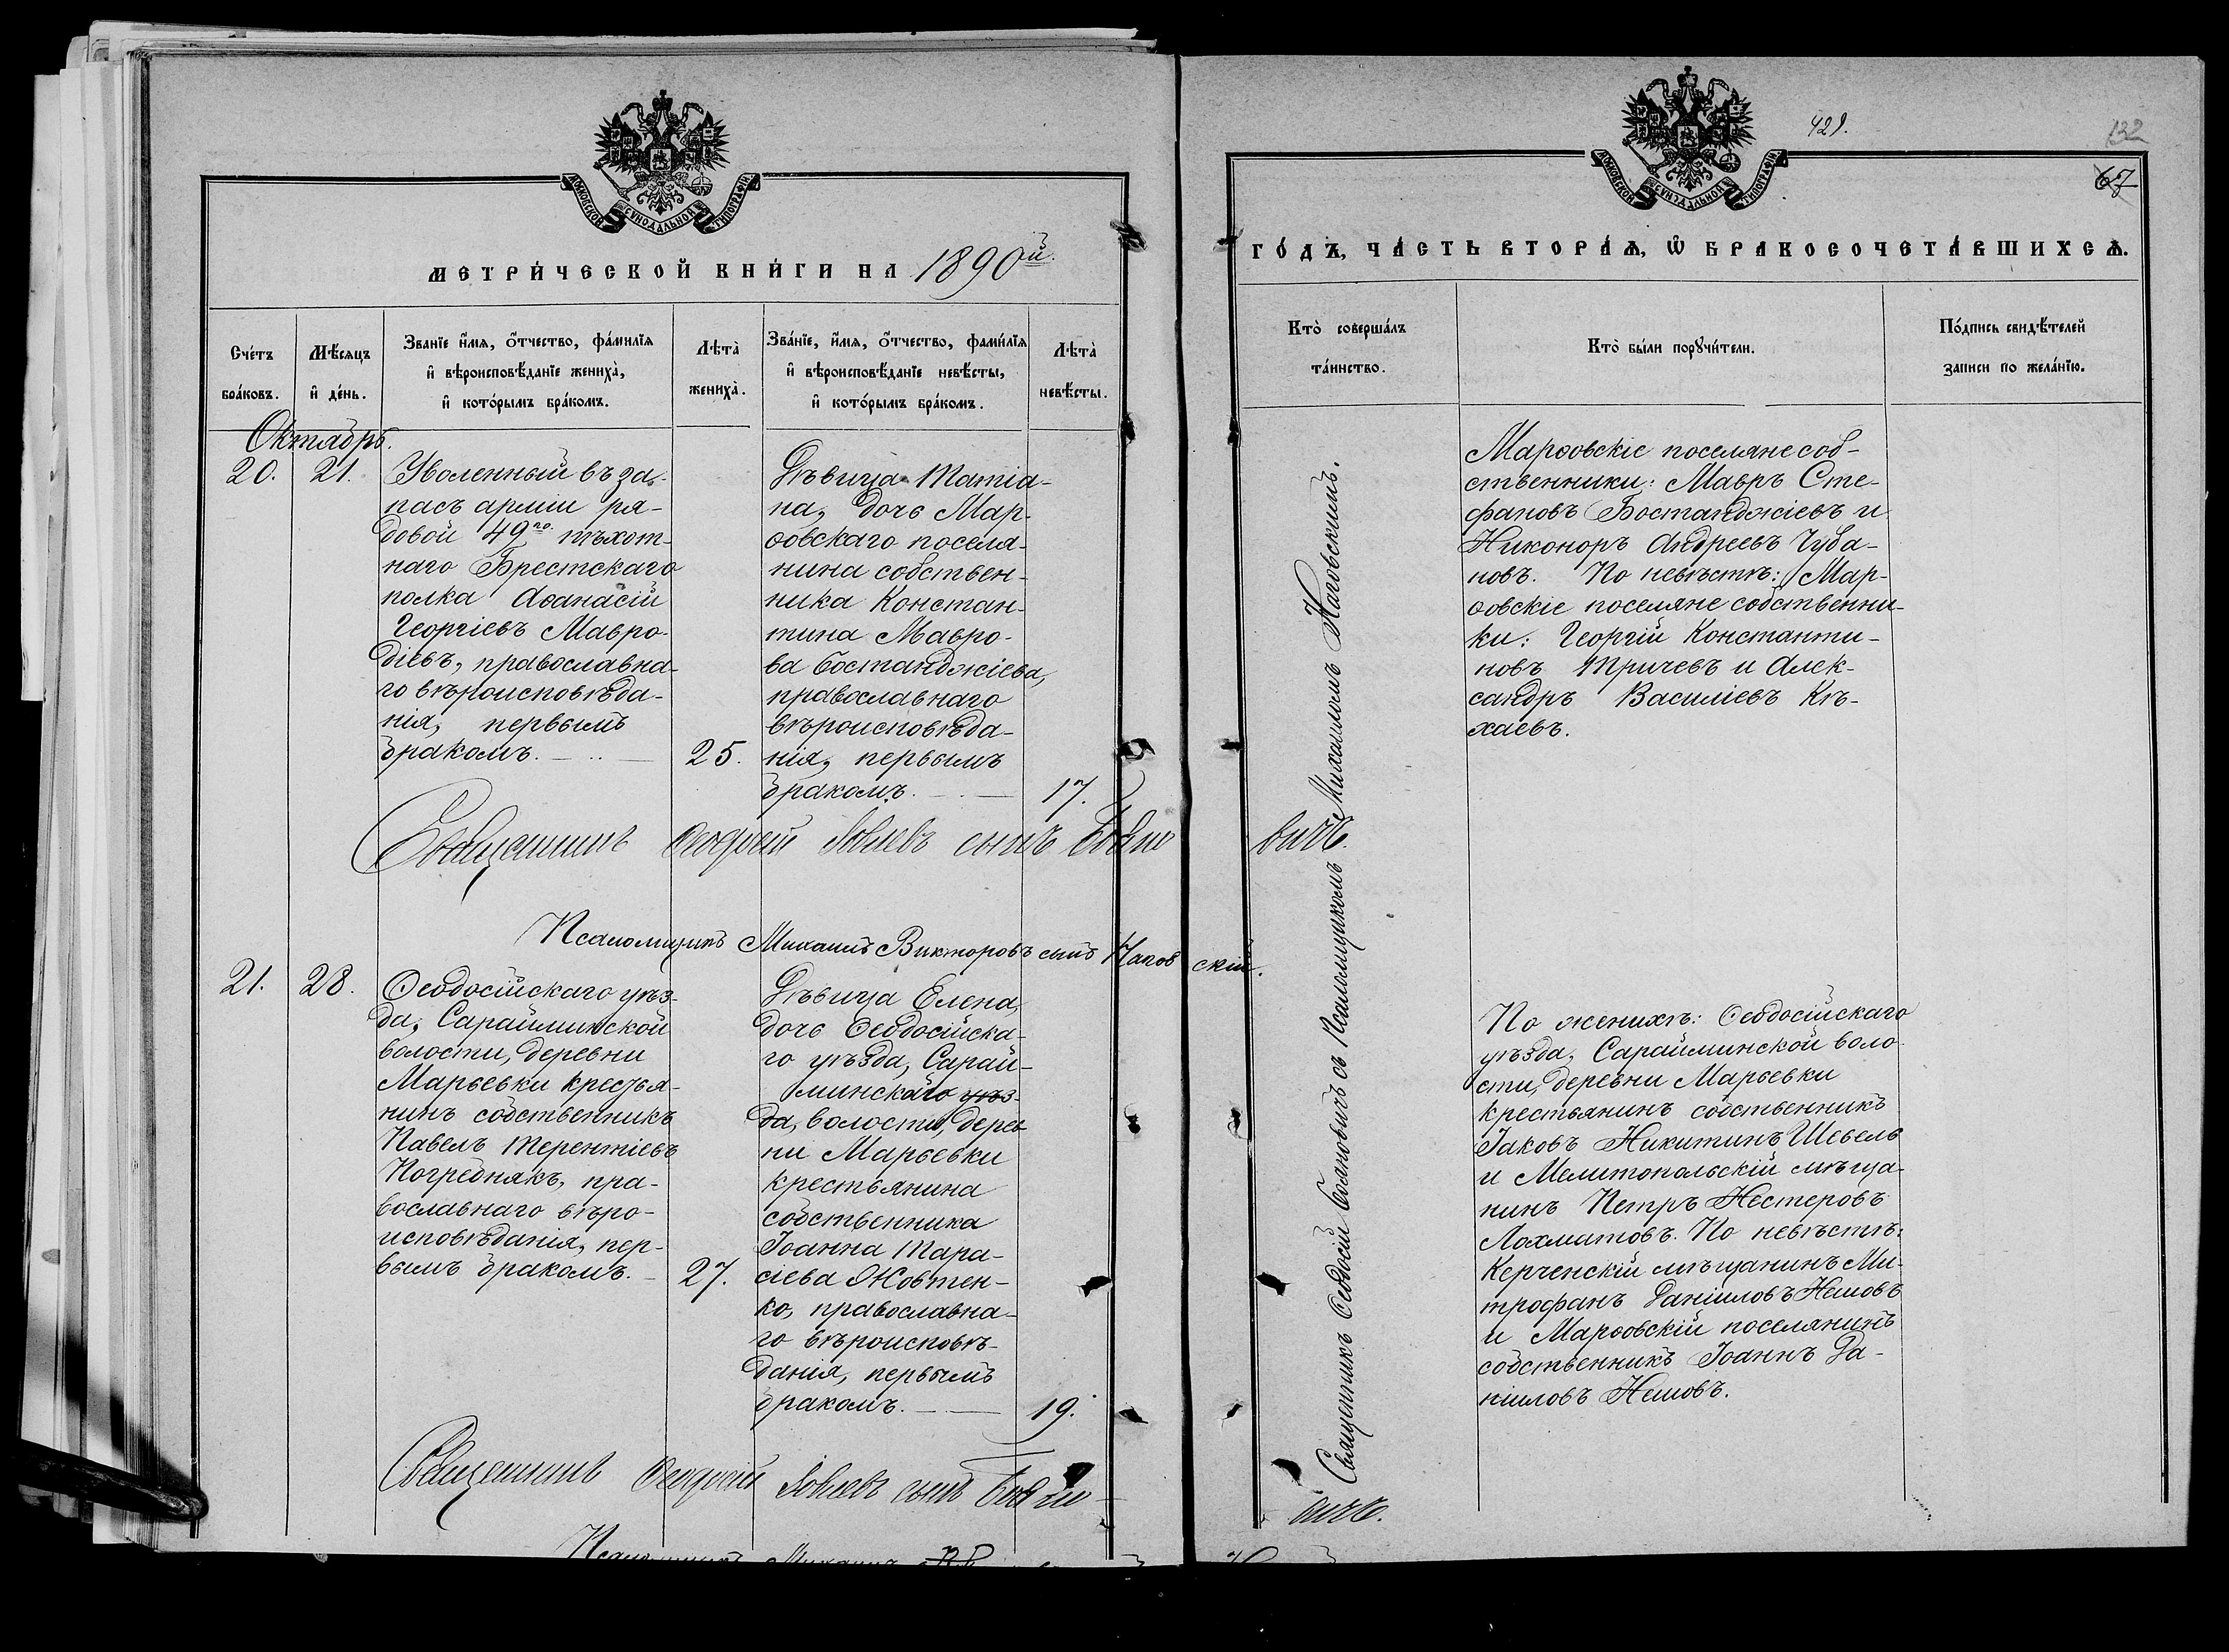 МОСКОВСКОЙ СѴНОДАЛЬНОЙ ТИПОГРАФІИ
МЕТРИ́ЧЕСКОЙ КНИ́ГИ НА 1890й.
Сче́тъ бра́ковъ.
Мѣ́сяцъ и҆ де́нь.
Зва́нїе и҆́мя, ѻ҆́тчество, фами́лїя и҆ вѣроисповѣ́данїе жениха̀, и҆ кото́рымъ бра́комъ.
Лѣта̀ жениха̀.
Зва́нїе, и҆́мя, ѻ҆́тчество, фами́лїя и҆ вѣроисповѣ́данїе невѣ́сты, и҆ кото́рымъ бра́комъ.
Лѣта̀ невѣ́сты.
Октябрь.
20.
21.
Уволенный въ за-
пасъ арміи ря-
довой 49го пѣхот-
наго Брестскаго
полка Аѳанасій
Георгіевъ Мавро-
діевъ, православна-
го вѣроисповѣда-
нія, первымъ
бракомъ.
25.
Дѣвица Матіа-
на, дочь Мар-
ѳовскаго поселя-
нина собствен-
ника Констан-
тина Мавро-
ва Бостанджіева,
православнаго
вѣроисповѣда-
нія, первымъ
бракомъ.
17.
Священникъ Ѳеодосій Іовлевъ сынъ Бояно
вичъ.
Псаломщикъ Михаилъ Викторовъ сынъ Нагов
скій.
21.
28.
Ѳеодосійскаго уѣз-
да, Сарайминской
волости, деревни
Марьевки крестья-
нинъ собственникъ
Павелъ Терентіевъ
Погребнякъ, пра-
вославнаго вѣро-
исповѣданія, пер-
вымъ бракомъ.
27.
Дѣвица Елена,
дочь Ѳеодосійска-
го уѣзда, Сарай-
минскаго уѣз-
да, волости, дерев
ни Марьевки
крестьянина
собственника
Іоанна Тара-
сіева Жовтен-
ко, православна-
го вѣроисповѣ-
данія, первымъ
бракомъ.
19.
Священникъ Ѳеодосій Іовлевъ сынъ Бояно-
вичъ.
Псаломщикъ Михаилъ
421.
132
67
МОСКОВСКОЙ СѴНОДАЛЬНОЙ ТИПОГРАФІИ
ГО́ДЪ, ЧА́СТЬ ВТОРА́Ѧ, Ѽ БРАКОСОЧЕТА́ВШИХСѦ.
Кто̀ соверша́лъ та́инство.
Кто̀ бы́ли порꙋчи́тели.
По́дпись свидѣ́телей записи по жела́нїю.
Священникъ Ѳеодосій Бояновичъ съ Псаломщикомъ Михаиломъ Наговскимъ.
Марѳовскіе поселяне соб-
ственники: Мавръ Сте-
фановъ Бостанджіевъ и
Никоноръ Андреевъ Чуба-
новъ. По невѣстѣ: Мар-
ѳовскіе поселяне собственни-
ки: Георгій Константи-
новъ Тричевъ и Алек-
сандръ Василіевъ Кѣ-
хаевъ.
По женихѣ: Ѳеодосійскаго
уѣзда, Сарайминской воло-
сти, деревни Марьевки
крестьянинъ собственникъ
Іаковъ Никитинъ Шевель
и Мелитопольскій мѣща-
нинъ Петръ Нестеровъ
Лохматовъ. По невѣстѣ:
Керченскій мѣщанинъ Ми-
трофанъ Даніиловъ Немовъ
и Марѳовскій поселянинъ
собственникъ Іоаннъ Да-
ніиловъ Немовъ.